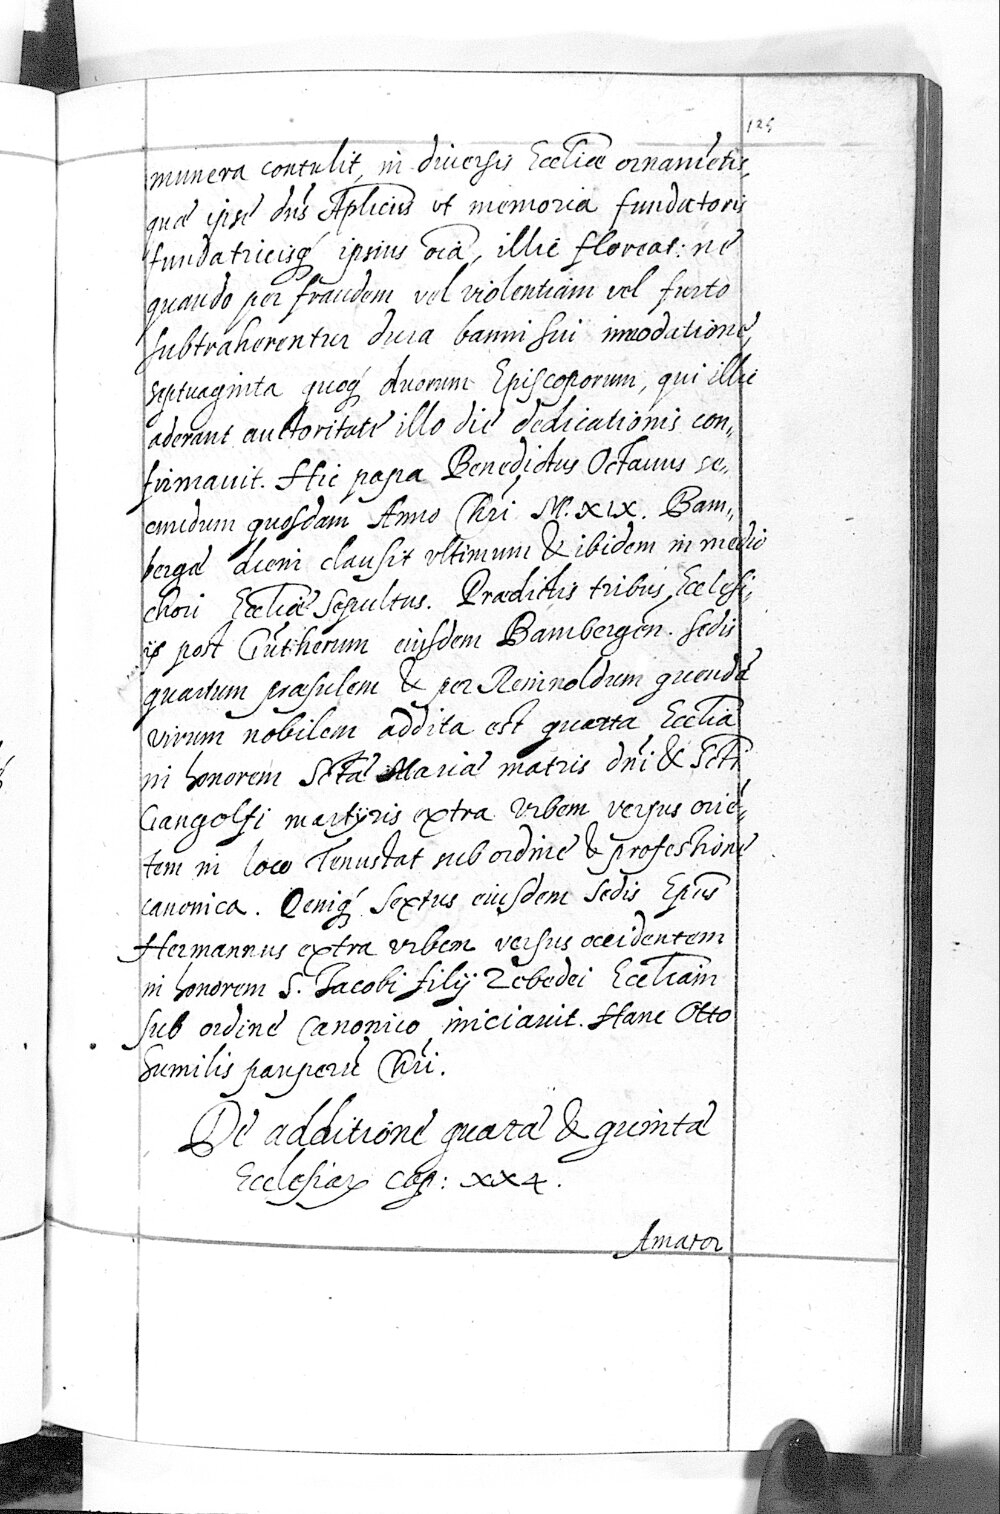 125
munera contulit, in diversis Eccliæ ornamētis,
quæ ipse dn̄s Aplicus vt memoria fundatoris
fundatricisq́ ipsius oīa, illic floreat: ne
quando per fraudem vel violentiam vel furto
subtraherentur dura banni sui innodatione,
septuaginta quoq́ duorum Episcoporum, qui illic
aderant auctoritate illo die dedicationis con„
firmavit. Hic papa Benedictus Octavus se„
cundum quosdam Anno Chr̄i M. XIX. Bam„
bergæ diem clausit vltimum & ibidem in medio
chori Eccliæ sepultus. Prædictis tribus Ecclesi„
ijs post Gūtherum eiusdem Bambergen̄. sedis
quartum præsulem & per Reinnoldum quendā
virum nobilem addita est quarta Ecclia
in honorem Sctæ Mariæ matris dn̄i & Scti
Gangolfi martyris extra vrbem versus oriē„
tem in loco Tenustat sub ordine & professione
canonica. Deniq́ sextus eiusdem sedis Ep̄us
Hermannus extra vrbem versus occidentem
in honorem S. Jacobi filij Zebedei Eccliam
sub ordine Canonico iniciavit. Hanc Otto
humilis pauperū Chr̄i.
De additione quartæ & quintæ
Ecclesiaꝝ Cap: XX4.
Amator